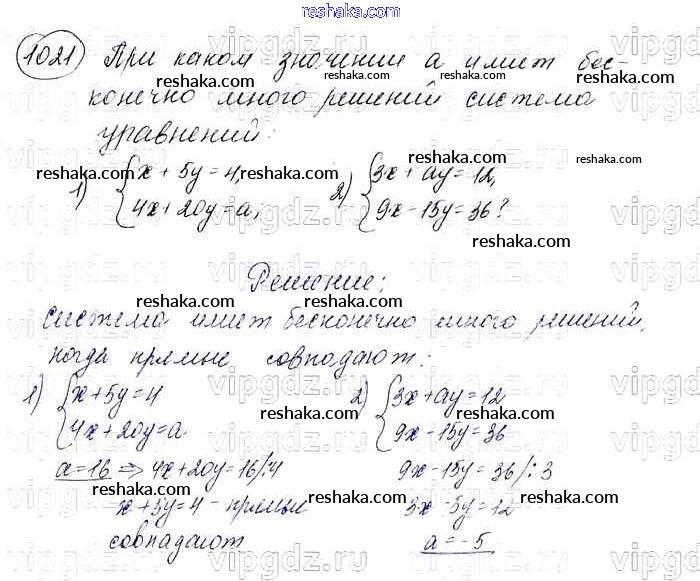 reshaka.com
1021 При каком значении а имеет бес-
reshaka.com reshaka.com
конечно много решений система
reshaka.com reshaka.com
уравнений:
1) { x + 5y = 4, 2) { 3x + ay = 12,
reshaka.com reshaka.com
4x + 20y = a; 9x - 15y = 36?
reshaka.com reshaka.com
Решение:
reshaka.com reshaka.com
система имеет бесконечно много решений,
когда прямые совпадают:
reshaka.com reshaka.com
1) { x + 5y = 4 2) { 3x + ay = 12
reshaka.com reshaka.com
4x + 20y = a 9x - 15y = 36
a = 16 => 4x + 20y = 16 /:4 9x - 15y = 36 /:3
reshaka.com reshaka.com
x + 5y = 4 - прямые 3x - 5y = 12
reshaka.com reshaka.com
совпадают a = -5
reshaka.com reshaka.com
vipgdz.ru